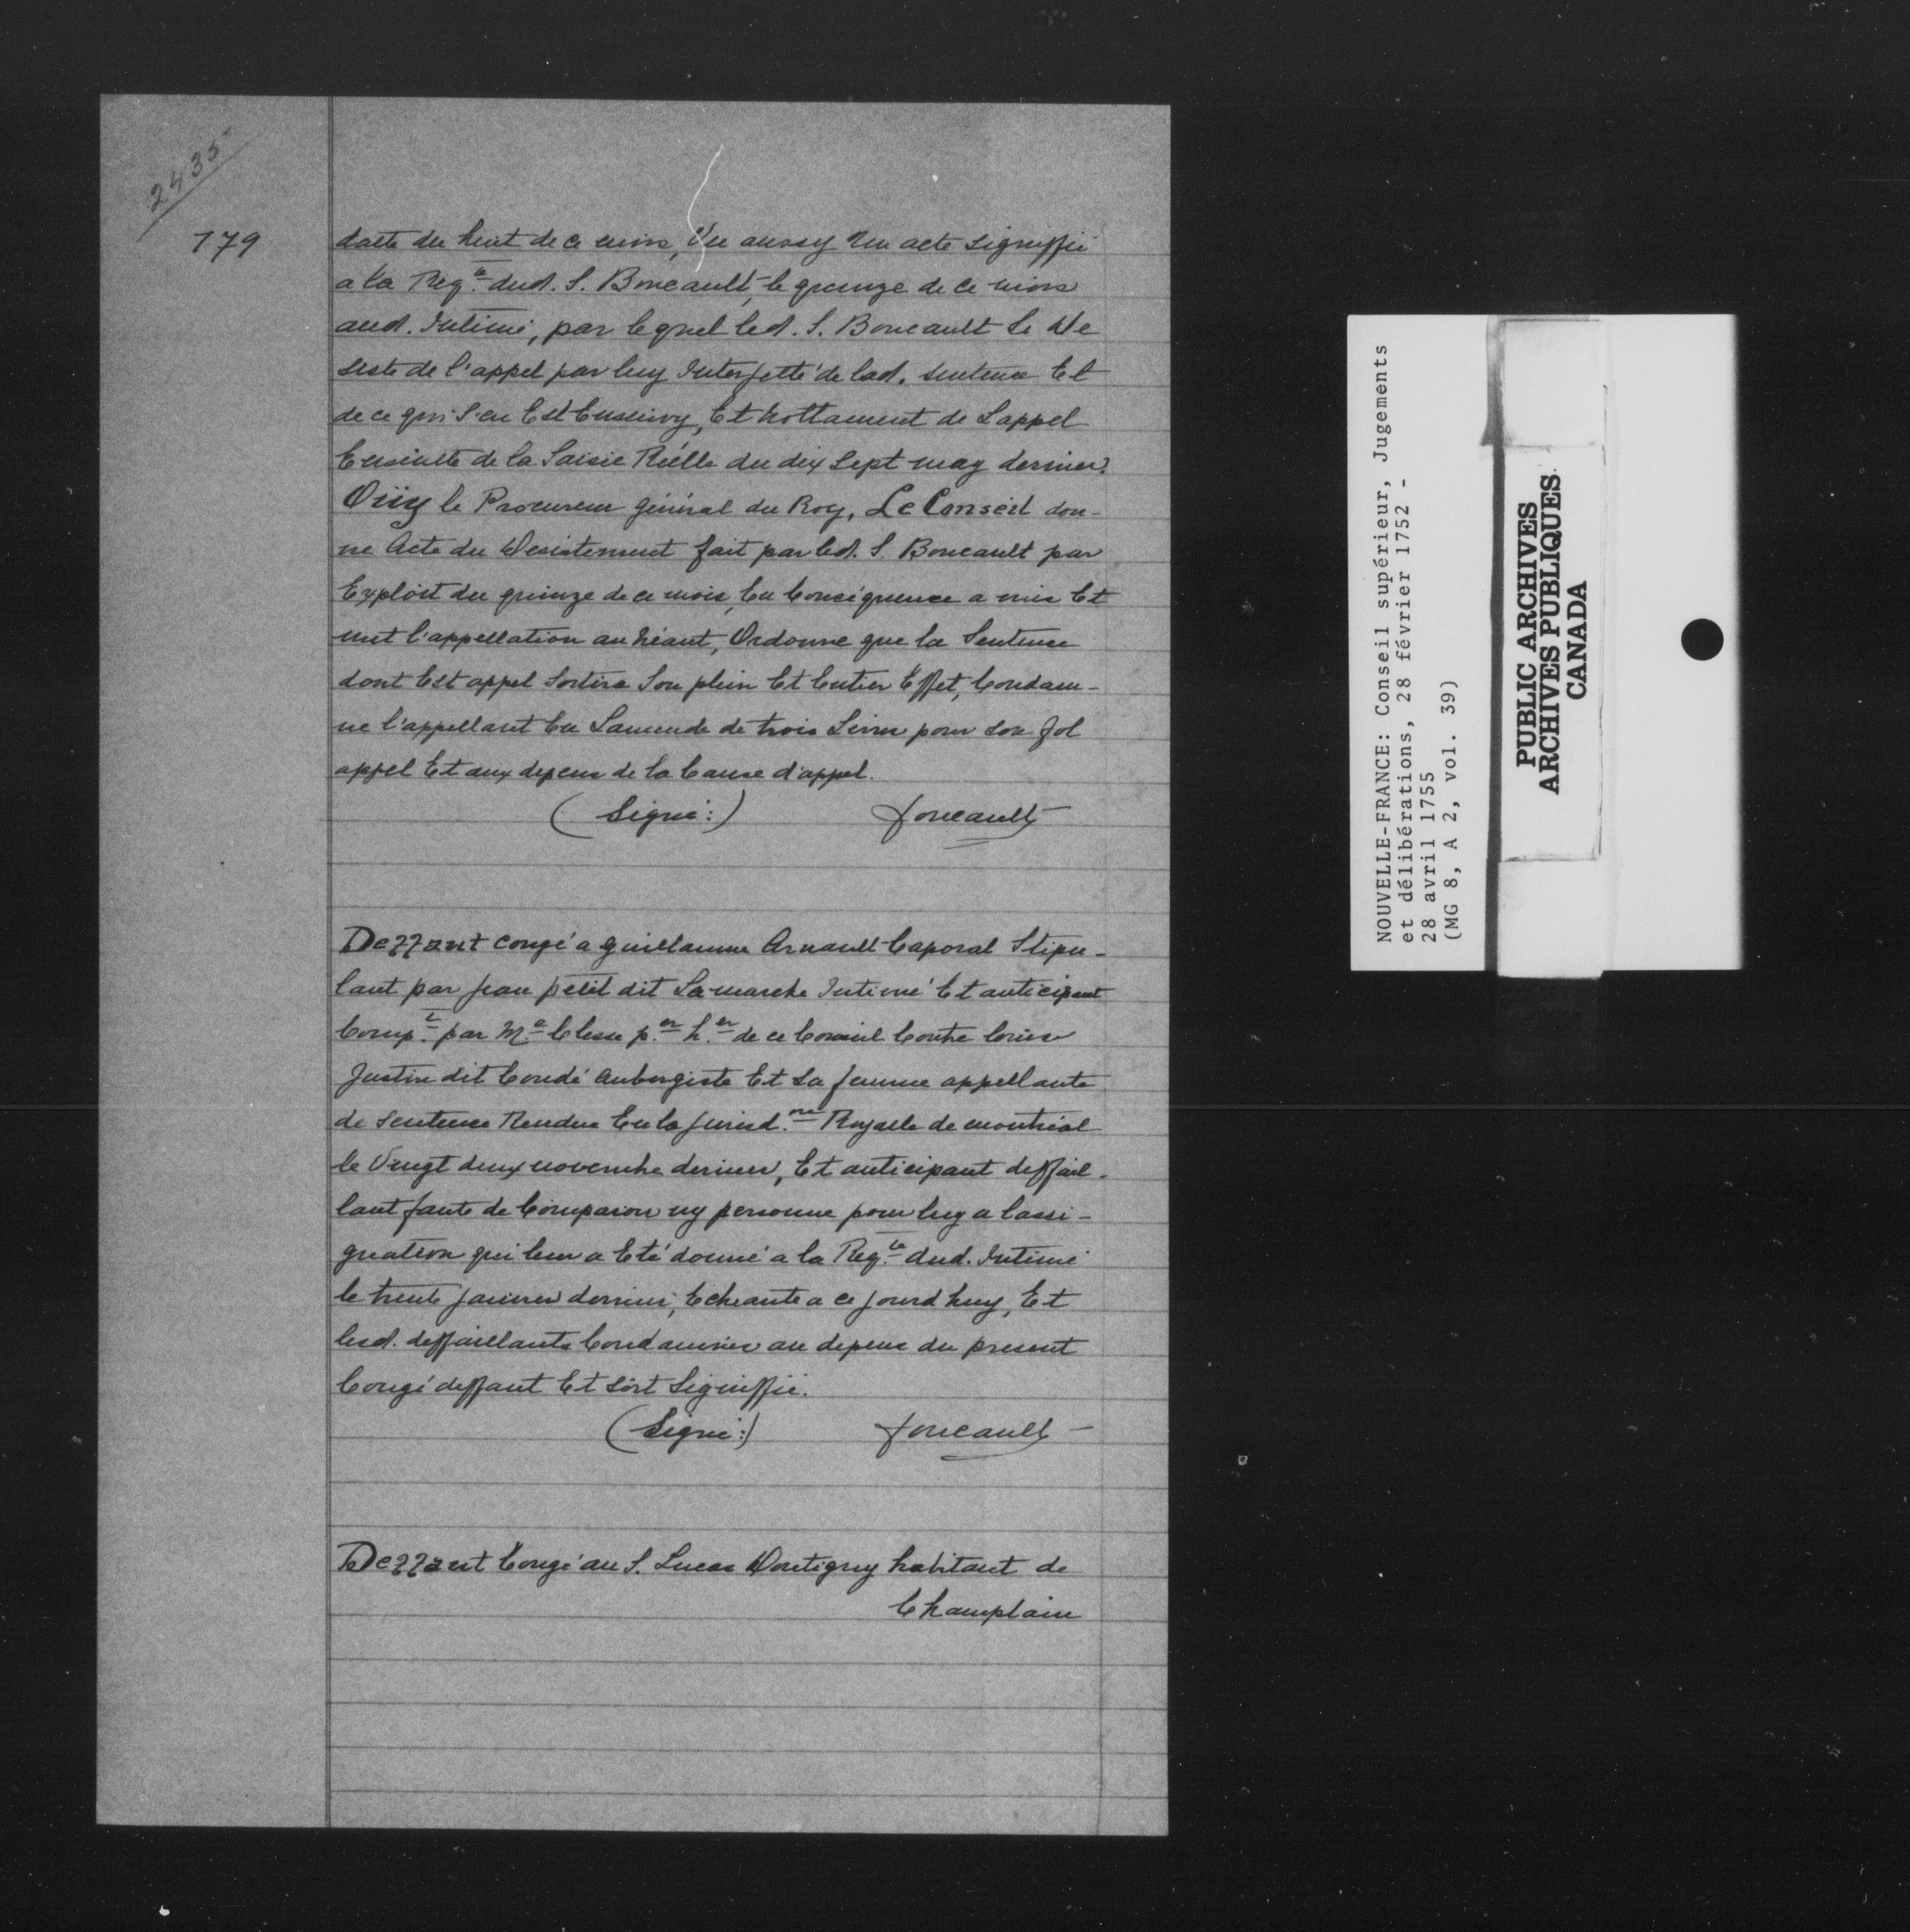 2435
179
datte du huit de ce mois, Vu aussy Un acte signiffié
a la Reqte dud. S. Boucault, le quinze de ce mois
aud. Intimé, par lequel led. S. Boucault Se De
siste de l'appel par luy Interjetté de lad. sentence Et
de ce qui S'en Est Ensuivy, Et Nottament de Lappel
Ensuitte de la Saisie Réelle du dix Sept may dernier.
Oüy le Procureur général du Roy, Le Conseil don-
ne Acte du Desistement fait par led. S. Boucault par
Exploit du quinze de ce mois, En Conséquence a mis Et
met l'appellation au Néant, Ordonne que la Sentence
dont Est appel Sortira Son plein Et Entier Effet, Condam-
ne l'appellant En Lamende de trois Livres pour son fol
appel Et aux depens de la Cause d'appel.
(Signé:) foucault
Deffaut congé a Guillaume Arnault Caporal Stipu-
lant par Jean petit dit Lamarche Intimé Et anticipant
Compt par Me Clesse per her de ce Conseil Contre Louis
Justin dit Condé Aubergiste Et Sa femme appellants
de Sentence Rendue En la Jurisd.ne Royalle de montréal
le Vingt deux novembre dernier, Et anticipant deffail-
lant faute de Comparoir ny personne pour luy a lassi-
gnation qui leur a Eté donné a la Reqte dud. Intimé
le trente janvier dernier, Echeante a ce jourd huy, Et
lesd. deffaillants Condamnés au depens du present
Congé deffaut Et Soit Signiffié.
(Signé:) foucault
Deffaut Congé au S. Lucas Dontigny habitant de
Champlain
NOUVELLE-FRANCE: Conseil supérieur, Jugements
et délibérations, 28 février 1752 -
28 avril 1755
(MG 8, A 2, vol. 39)
PUBLIC ARCHIVES
ARCHIVES PUBLIQUES
CANADA